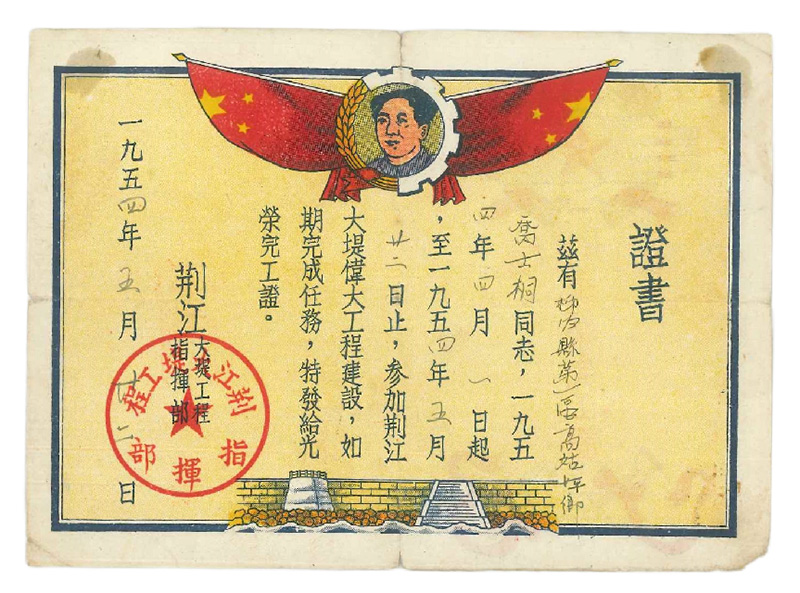 證書
茲有 縣第一區高姑坪鄉
喬士桐同志，一九五
四年四月一日起
，至一九五四年五月
廿二日止，參加荆江
大堤偉大工程建設，如
期完成任務，特發給光
榮完工證。
荆江大堤工程指揮部
一九五四年五月廿二日
荆江大堤工程
指揮部